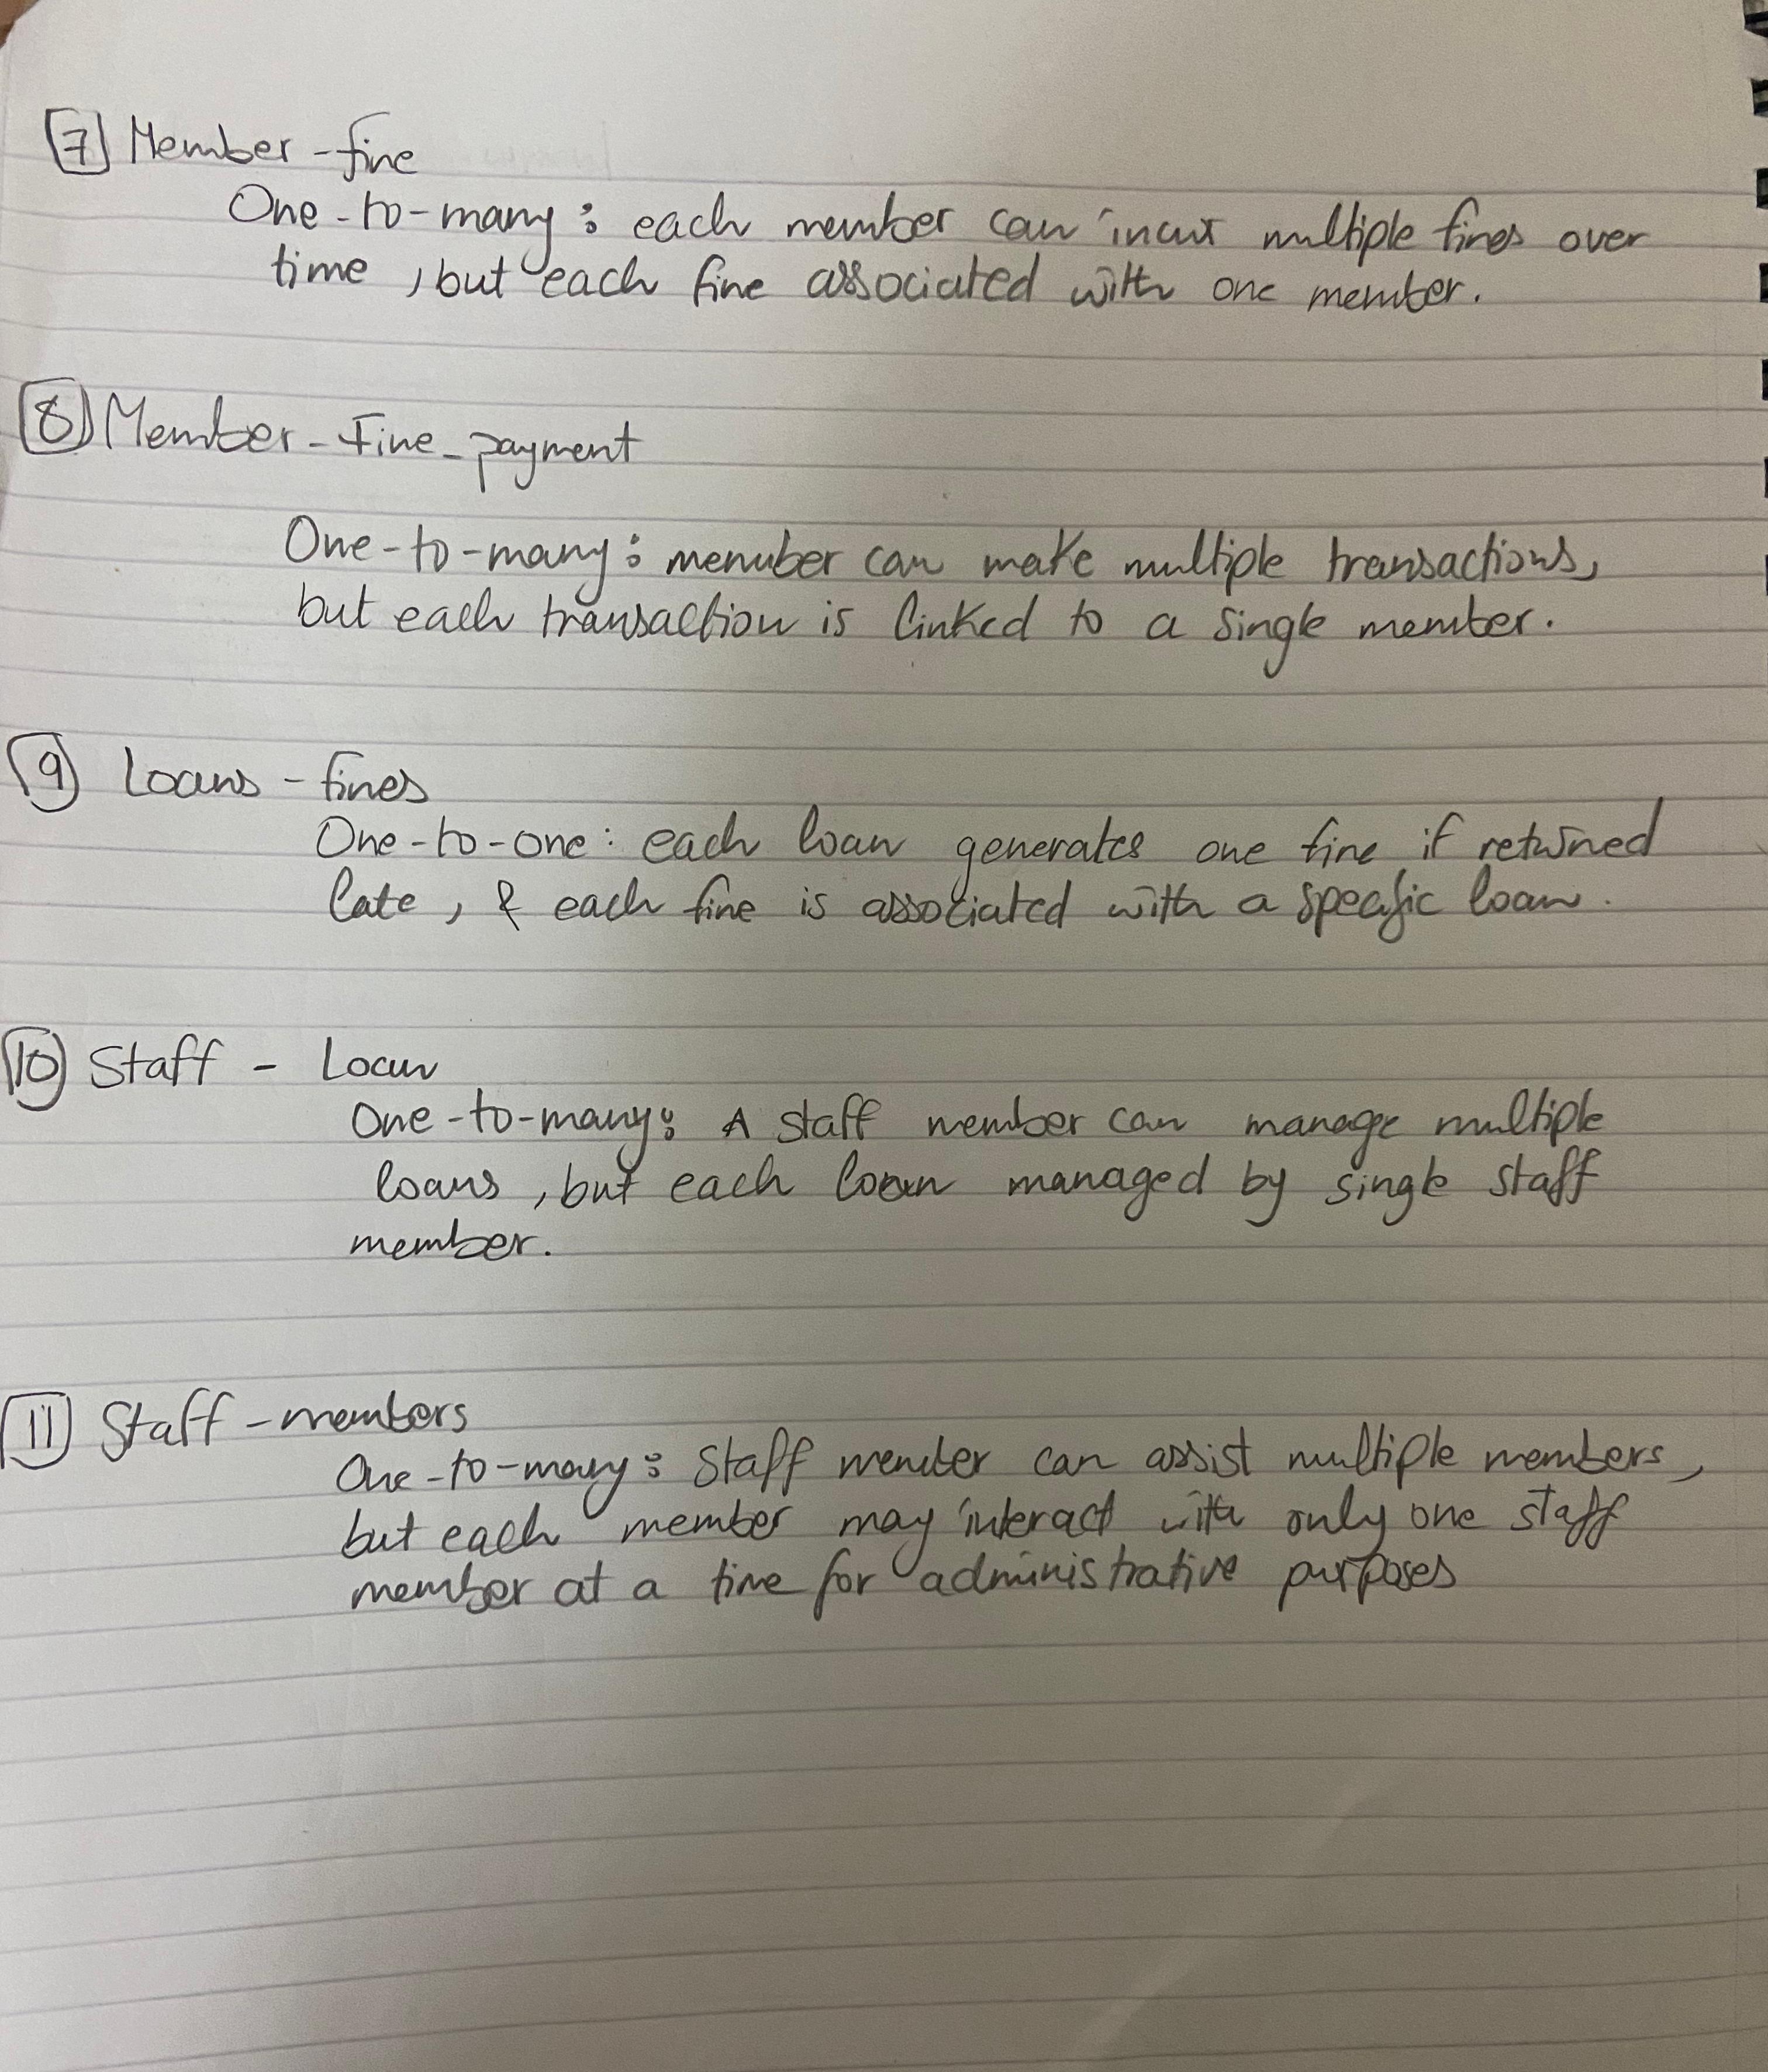 7 Member - fine
One - to - many : each member can incur multiple fines over
time , but each fine associated with one member.
8 Member - Fine_payment
One - to - many : member can make multiple transactions,
but each transaction is linked to a single member.
9 Loans - fines
One - to - one : each loan generates one fine if returned
late , & each fine is associated with a specific loan .
10 Staff - Loan
One - to - many : A staff member can manage multiple
loans , but each loan managed by single staff
member.
11 Staff - members
One - to - many : Staff member can assist multiple members ,
but each member may interact with only one staff
member at a time for administrative purposes